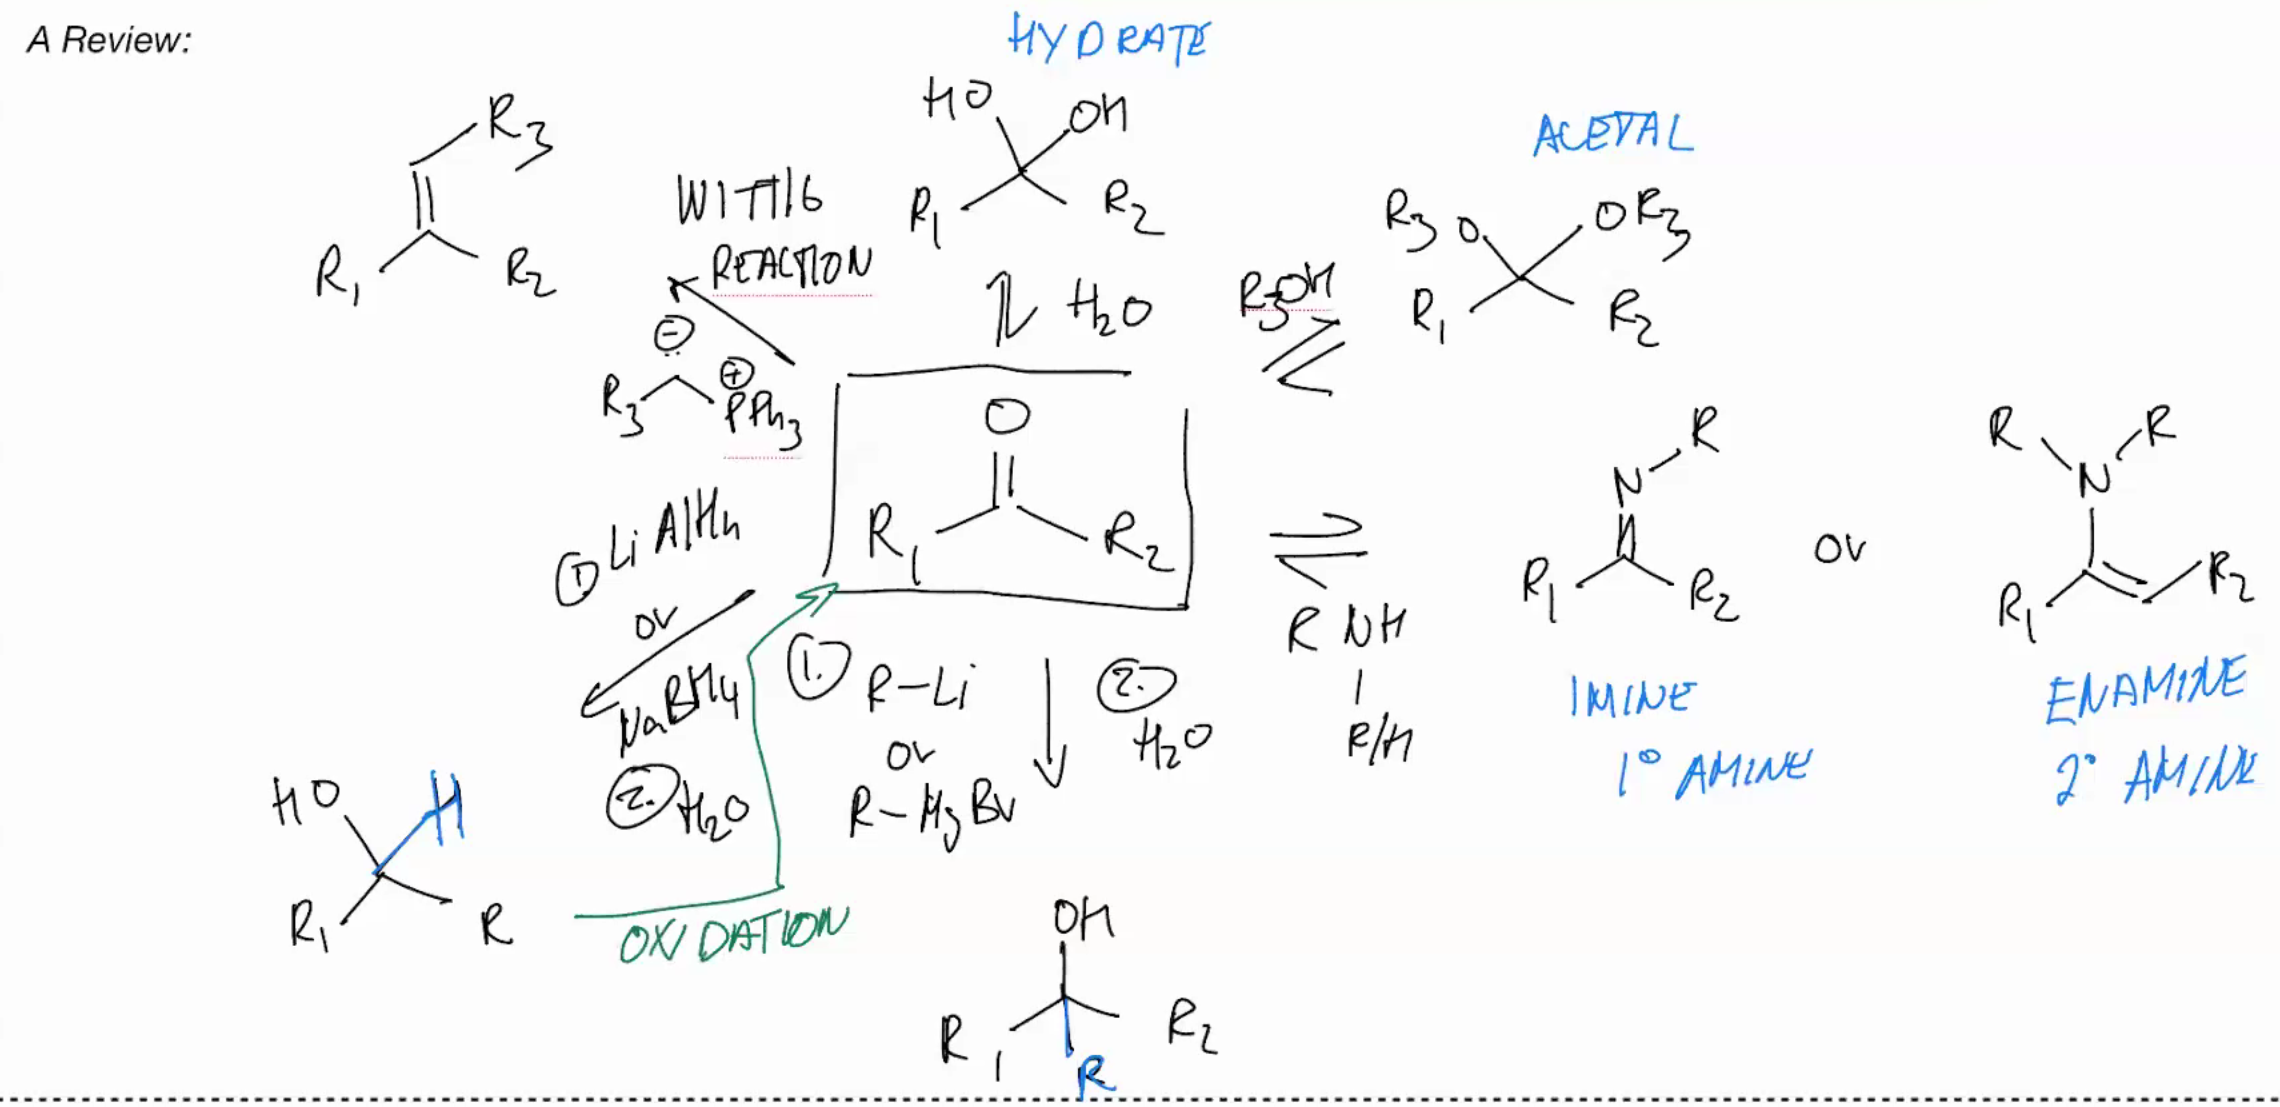 A Review:
HYDRATE
HO
OH
R1
R2
ACETAL
R3O
OR3
R1
R2
R3
R1
R2
WITTIG
REACTION
H2O
R3OH
⊖
⊕
R3
PPh3
O
R1
R2
N
R
R1
R2
or
R
R
N
R1
R2
① LiAlH4
or
NaBH4
②. H2O
①. R-Li
or
R-MgBr
②.
H2O
R NH
R/H
IMINE
1° AMINE
ENAMINE
2° AMINE
HO
H
R1
R
OXIDATION
OH
R1
R2
R